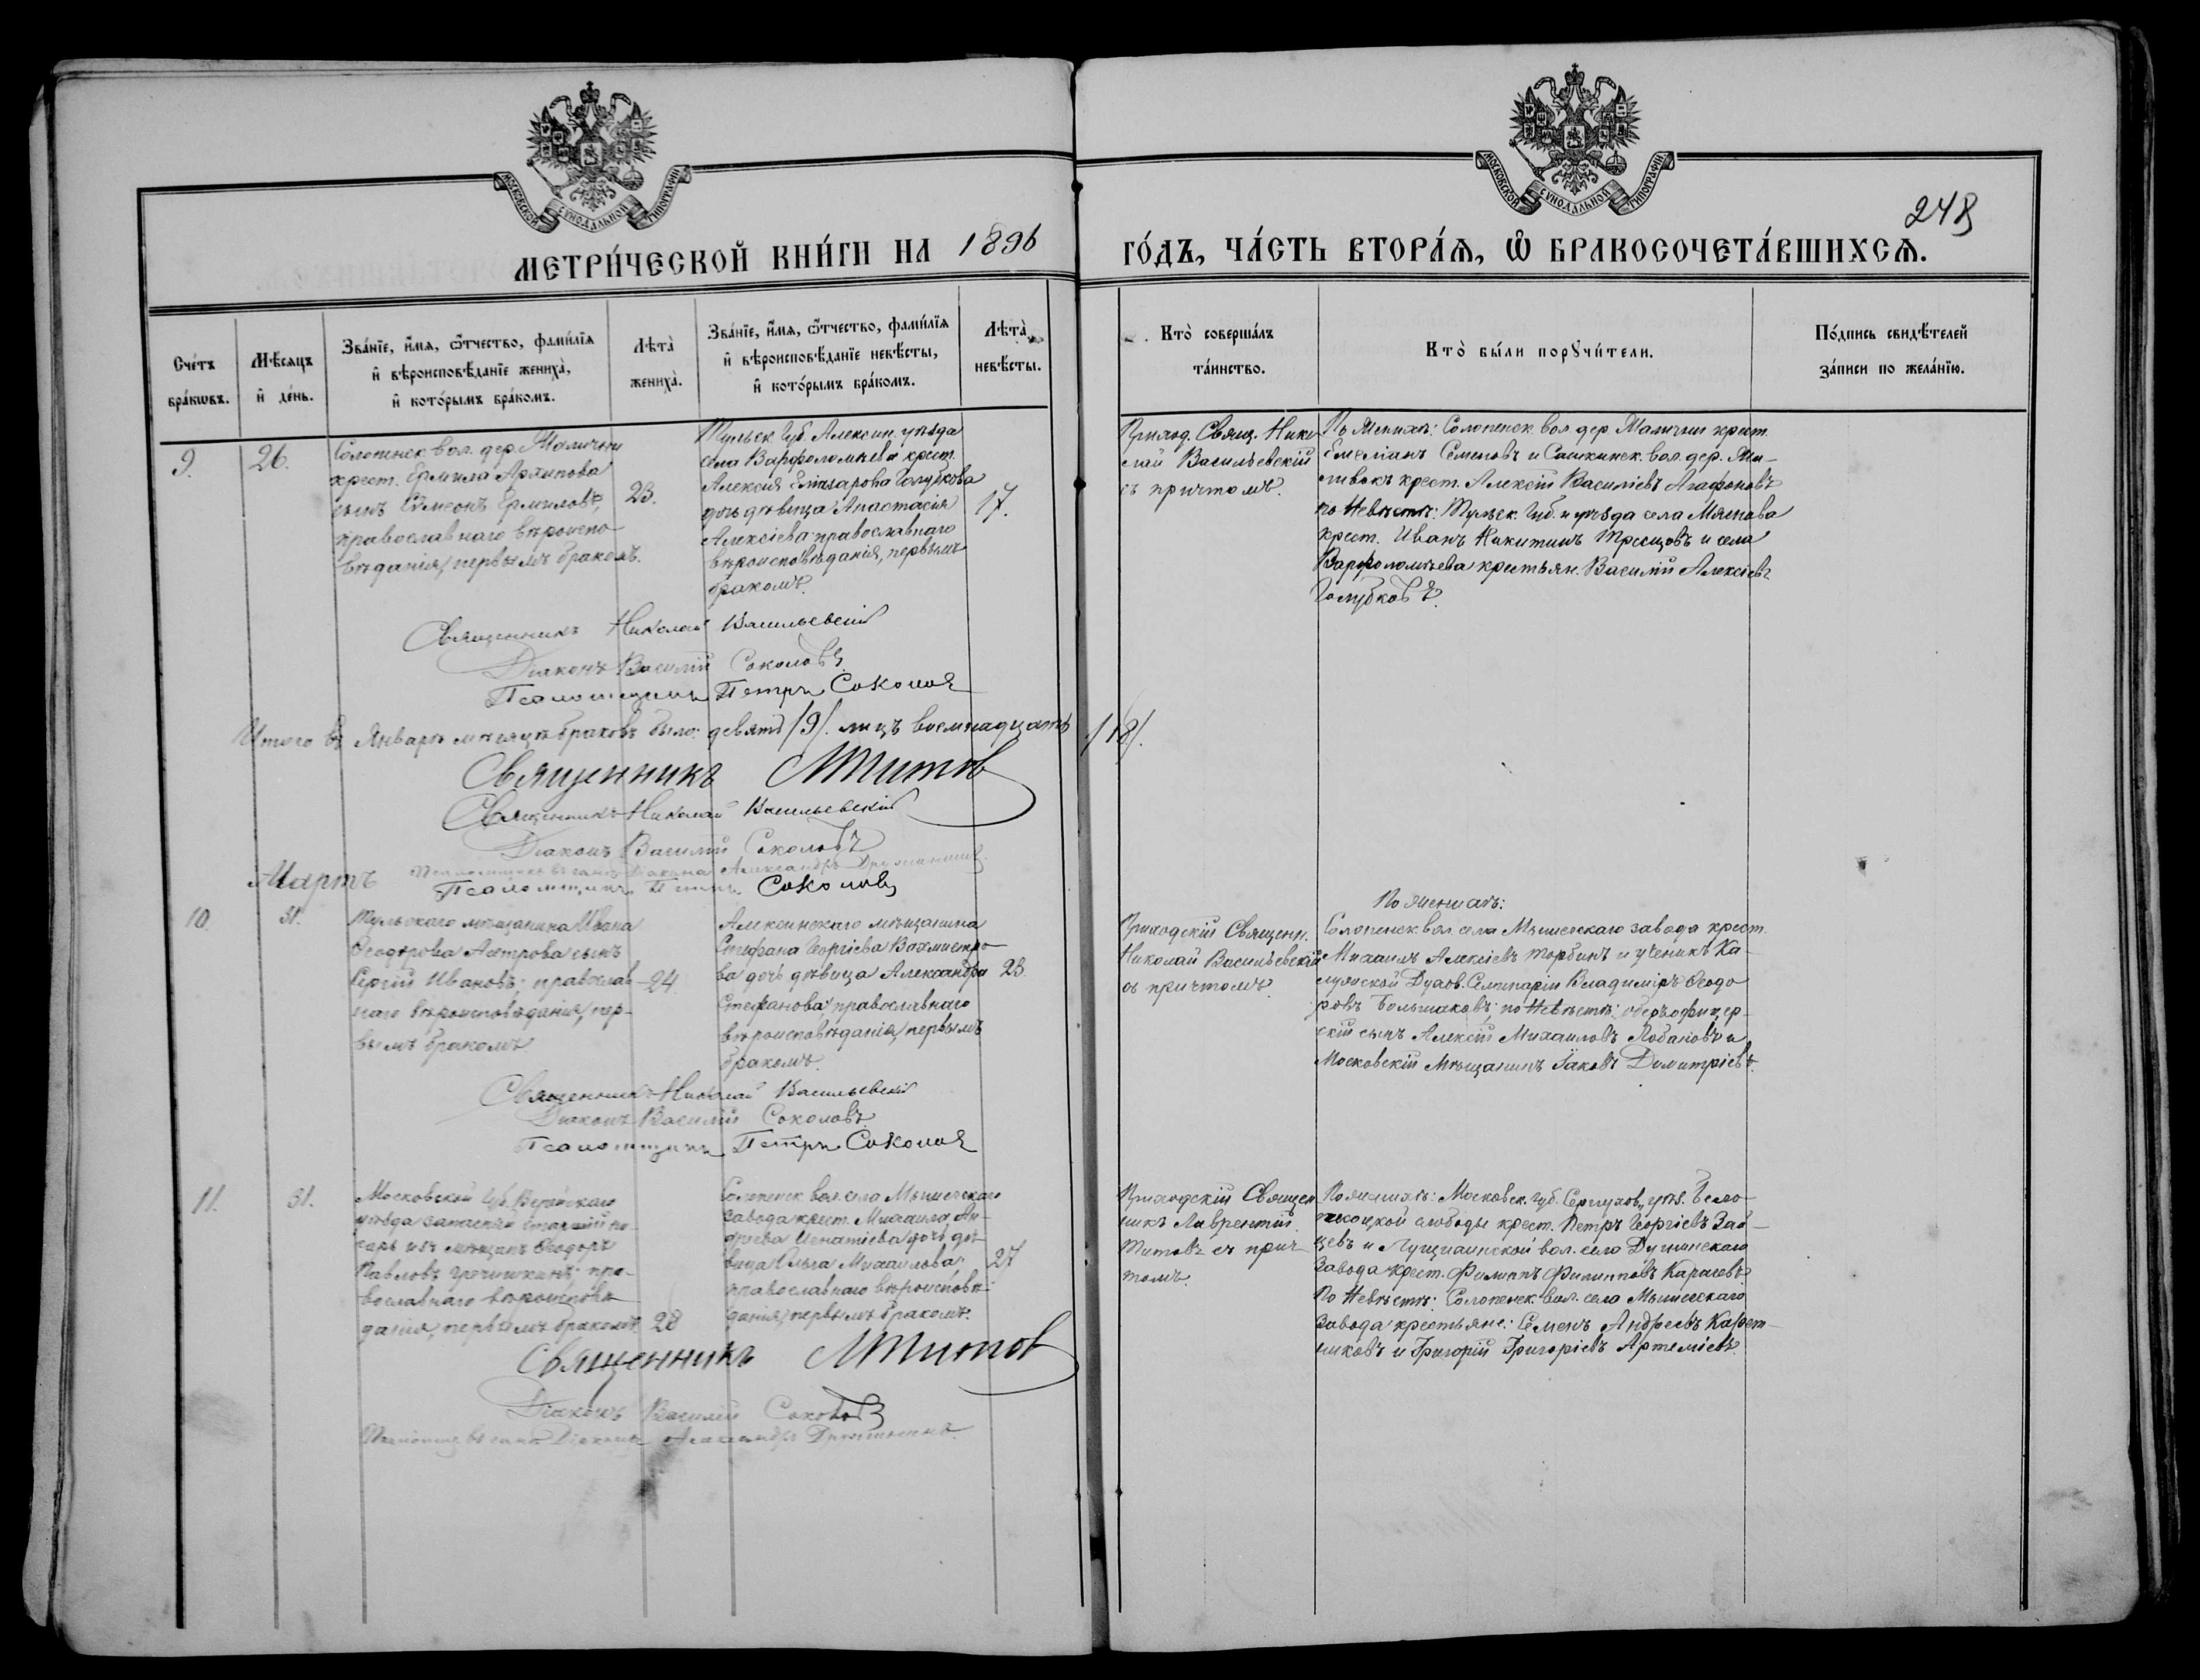 МОСКОВСКОЙ СѴНОДАЛЬНОЙ ТИПОГРАФІИ
МОСКОВСКОЙ СѴНОДАЛЬНОЙ ТИПОГРАФІИ
248
МЕТРИ́ЧЕСКОЙ КНИ́ГИ НА 1896
ГО́ДЪ, ЧА́СТЬ ВТОРА́Ѧ, Ѡ҆ БРАКОСОЧЕТА́ВШИХСѦ.
Сче́тъ бра́кѡвъ.
Мѣ́сѧцъ и҆ де́нь.
Зва́нїе, и҆́мѧ, ѻ҆́тчество, фамилїѧ и҆ вѣроисповѣ́данїе жениха̀, и҆ кото́рымъ бра́комъ.
Лѣта̀ жениха̀.
Зва́нїе, и҆́мѧ, ѻ҆́тчество, фамилїѧ и҆ вѣроисповѣ́данїе невѣ́сты, и҆ кото́рымъ бра́комъ.
Лѣта̀ невѣ́сты.
Кто̀ соверша́лъ та́инство.
Кто̀ бы́ли порꙋчи́тели.
По́дпись свидѣ́телей за́писи по жела́нїю.
9.
26.
Солопенск. вол. дер.
крест. Ермила Архипова
сынъ Сѵмеонъ Ермиловъ,
православнаго вѣроиспо-
вѣданія, первымъ бракомъ.
23.
Тульск. Губ. Алексин. уѣзда
села Варфоломѣева крест.
Алексія Еліазарова Голубкова
дочь дѣвица Анастасія
Алексіева православнаго
вѣроисповѣданія, первымъ
бракомъ.
17.
Приход. Свящ. Нико
лай Васильевскій
съ причтомъ.
По Женихѣ: Солопенск. вол. дер. крест.
Емеліанъ Семеновъ и вол. дер.
крест. Алексій Василіевъ Агафоновъ
по Невѣстѣ: Тульск. Губ. и уѣзда села Мяснова
крест. Иванъ Никитинъ и села
Варфоломѣева крестьян. Василій Алексіевъ
Голубковъ.
Священникъ Николай Васильевскій
Діаконъ Василій Соколовъ
Псаломщикъ Петръ Соколовъ
Итого въ Январѣ мѣсяцѣ браковъ было: девять /9/. лицъ восемнадцать /18/.
Священникъ Л Титов
Священникъ Николай Васильевскій
Діаконъ Василій Соколовъ
Псаломщикъ въ санѣ Діакона Александръ
Псаломщикъ Петръ Соколовъ
Мартъ
10.
31.
Тульскаго мѣщанина Ивана
Ѳеодорова Астрова сынъ
Сергій Ивановъ; православ-
наго вѣроисповѣданія, пер-
вымъ бракомъ
24
Алексинскаго мѣщанина
Стефана Георгіева Вохмистро-
ва дочь дѣвица Александра
Стефанова, православнаго
вѣроисповѣданія, первымъ
бракомъ.
23.
Приходскій Священн.
Николай Васильевскій
съ причтомъ.
По женихѣ:
Солопенск. вол. села Мышегскаго завода крест.
Михаилъ Алексіевъ Торбинъ и ученикъ Ка-
лужской Духов. Семинаріи Владиміръ Ѳеодо-
ровъ Большаковъ; по Невѣстѣ: оберъофицер-
скій сынъ Алексій Михаиловъ Лобановъ и
Московскій мѣщанинъ Іаковъ Димитріевъ.
Священникъ Николай Васильевскій
Діаконъ Василій Соколовъ
Псаломщикъ Петръ Соколовъ
11.
31.
Московской Губ. Верейскаго
уѣзда запасный старшій пи-
сарь изъ мѣщанъ Ѳеодоръ
Павловъ Гречишкинъ; пра-
вославнаго вѣроисповѣ-
данія, первымъ бракомъ.
28
Солопенск. вол. села Мышегскаго
завода крест. Михаила Ан-
дреева Игнатіева дочь дѣ-
вица Ольга Михаилова,
православнаго вѣроисповѣ-
данія, первымъ бракомъ.
27
Приходскій Священ
никъ Лаврентій
Титовъ съ прич-
томъ.
По женихѣ: Московск. губ. Серпухов. уѣз.
слободы крест. Петръ Георгіевъ Зай-
цевъ и вол. села Дугнинскаго
Завода крест. Филиппъ Филипповъ Карачевъ
По Невѣстѣ: Солопенск. вол. села Мышегскаго
завода крестьяне: Семенъ Андреевъ Карет-
никовъ и Григорій Григоріевъ Артеміевъ.
Священникъ Л Титов
Діаконъ Василій Соколовъ
Псаломщ. въ санѣ Діакона Александръ